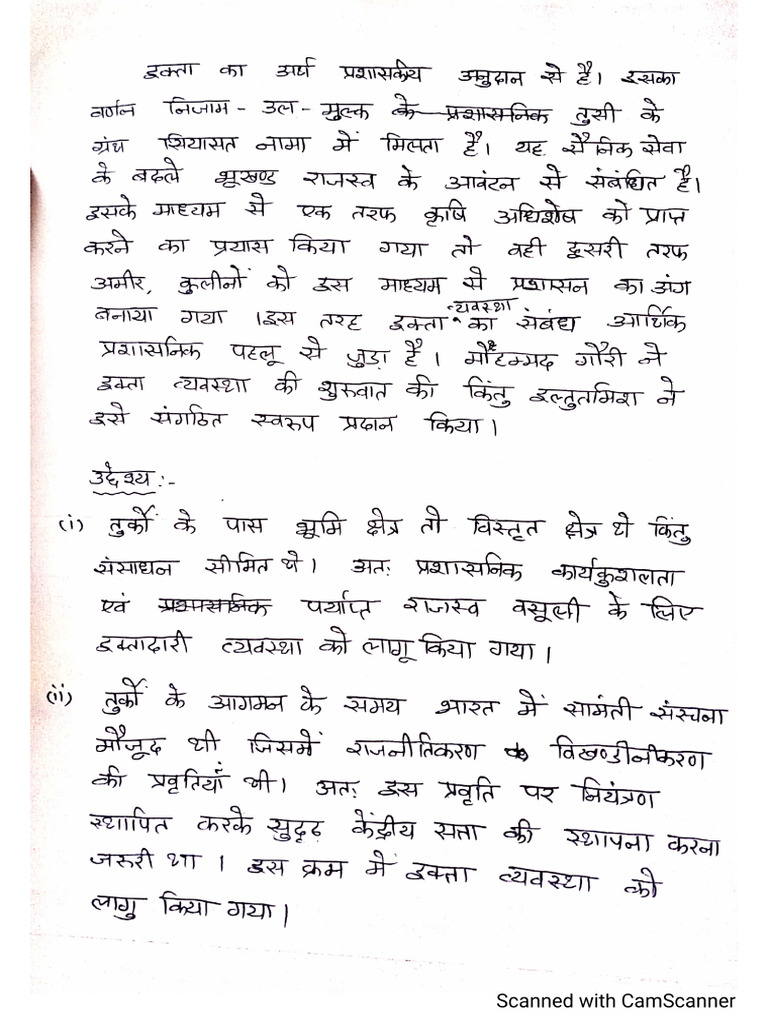 इक्ता का अर्थ प्रशासकीय अनुदान से है। इसका
वर्णन निजाम-उल-मुल्क के प्रशासनिक तुसी के
ग्रंथ शियासत नामा में मिलता है। यह सैनिक सेवा
के बदले भूखण्ड राजस्व के आवंटन से संबंधित है।
इसके माध्यम से एक तरफ कृषि अधिशेष को प्राप्त
करने का प्रयास किया गया तो वही दूसरी तरफ
अमीर, कुलीनों को इस माध्यम से प्रशासन का अंग
बनाया गया।इस तरह इक्ता व्यवस्था का संबंध आर्थिक
प्रशासनिक पहलू से जुड़ा है। मोहम्मद गौरी ने
इक्ता व्यवस्था की शुरुवात की किंतु इल्तुतमिश ने
इसे संगठित स्वरुप प्रदान किया।
उद्देश्य:-
(i) तुर्कों के पास भूमि क्षेत्र तो विस्तृत क्षेत्र थे किंतु
संसाधन सीमित थे। अतः प्रशासनिक कार्यकुशलता
एवं प्रशासनिक पर्याप्त राजस्व वसूली के लिए
इक्तादारी व्यवस्था को लागू किया गया।
(ii) तुर्कों के आगमन के समय भारत में सामंती संरचना
मौजूद थी जिसमें राजनीतिकरण विखण्डीनीकरण
की प्रवृतियाँ थी। अतः इस प्रवृति पर नियंत्रण
स्थापित करके सुदृढ़ केंद्रीय सत्ता की स्थापना करना
जरुरी था। इस क्रम में इक्ता व्यवस्था को
लागु किया गया।
Scanned with CamScanner